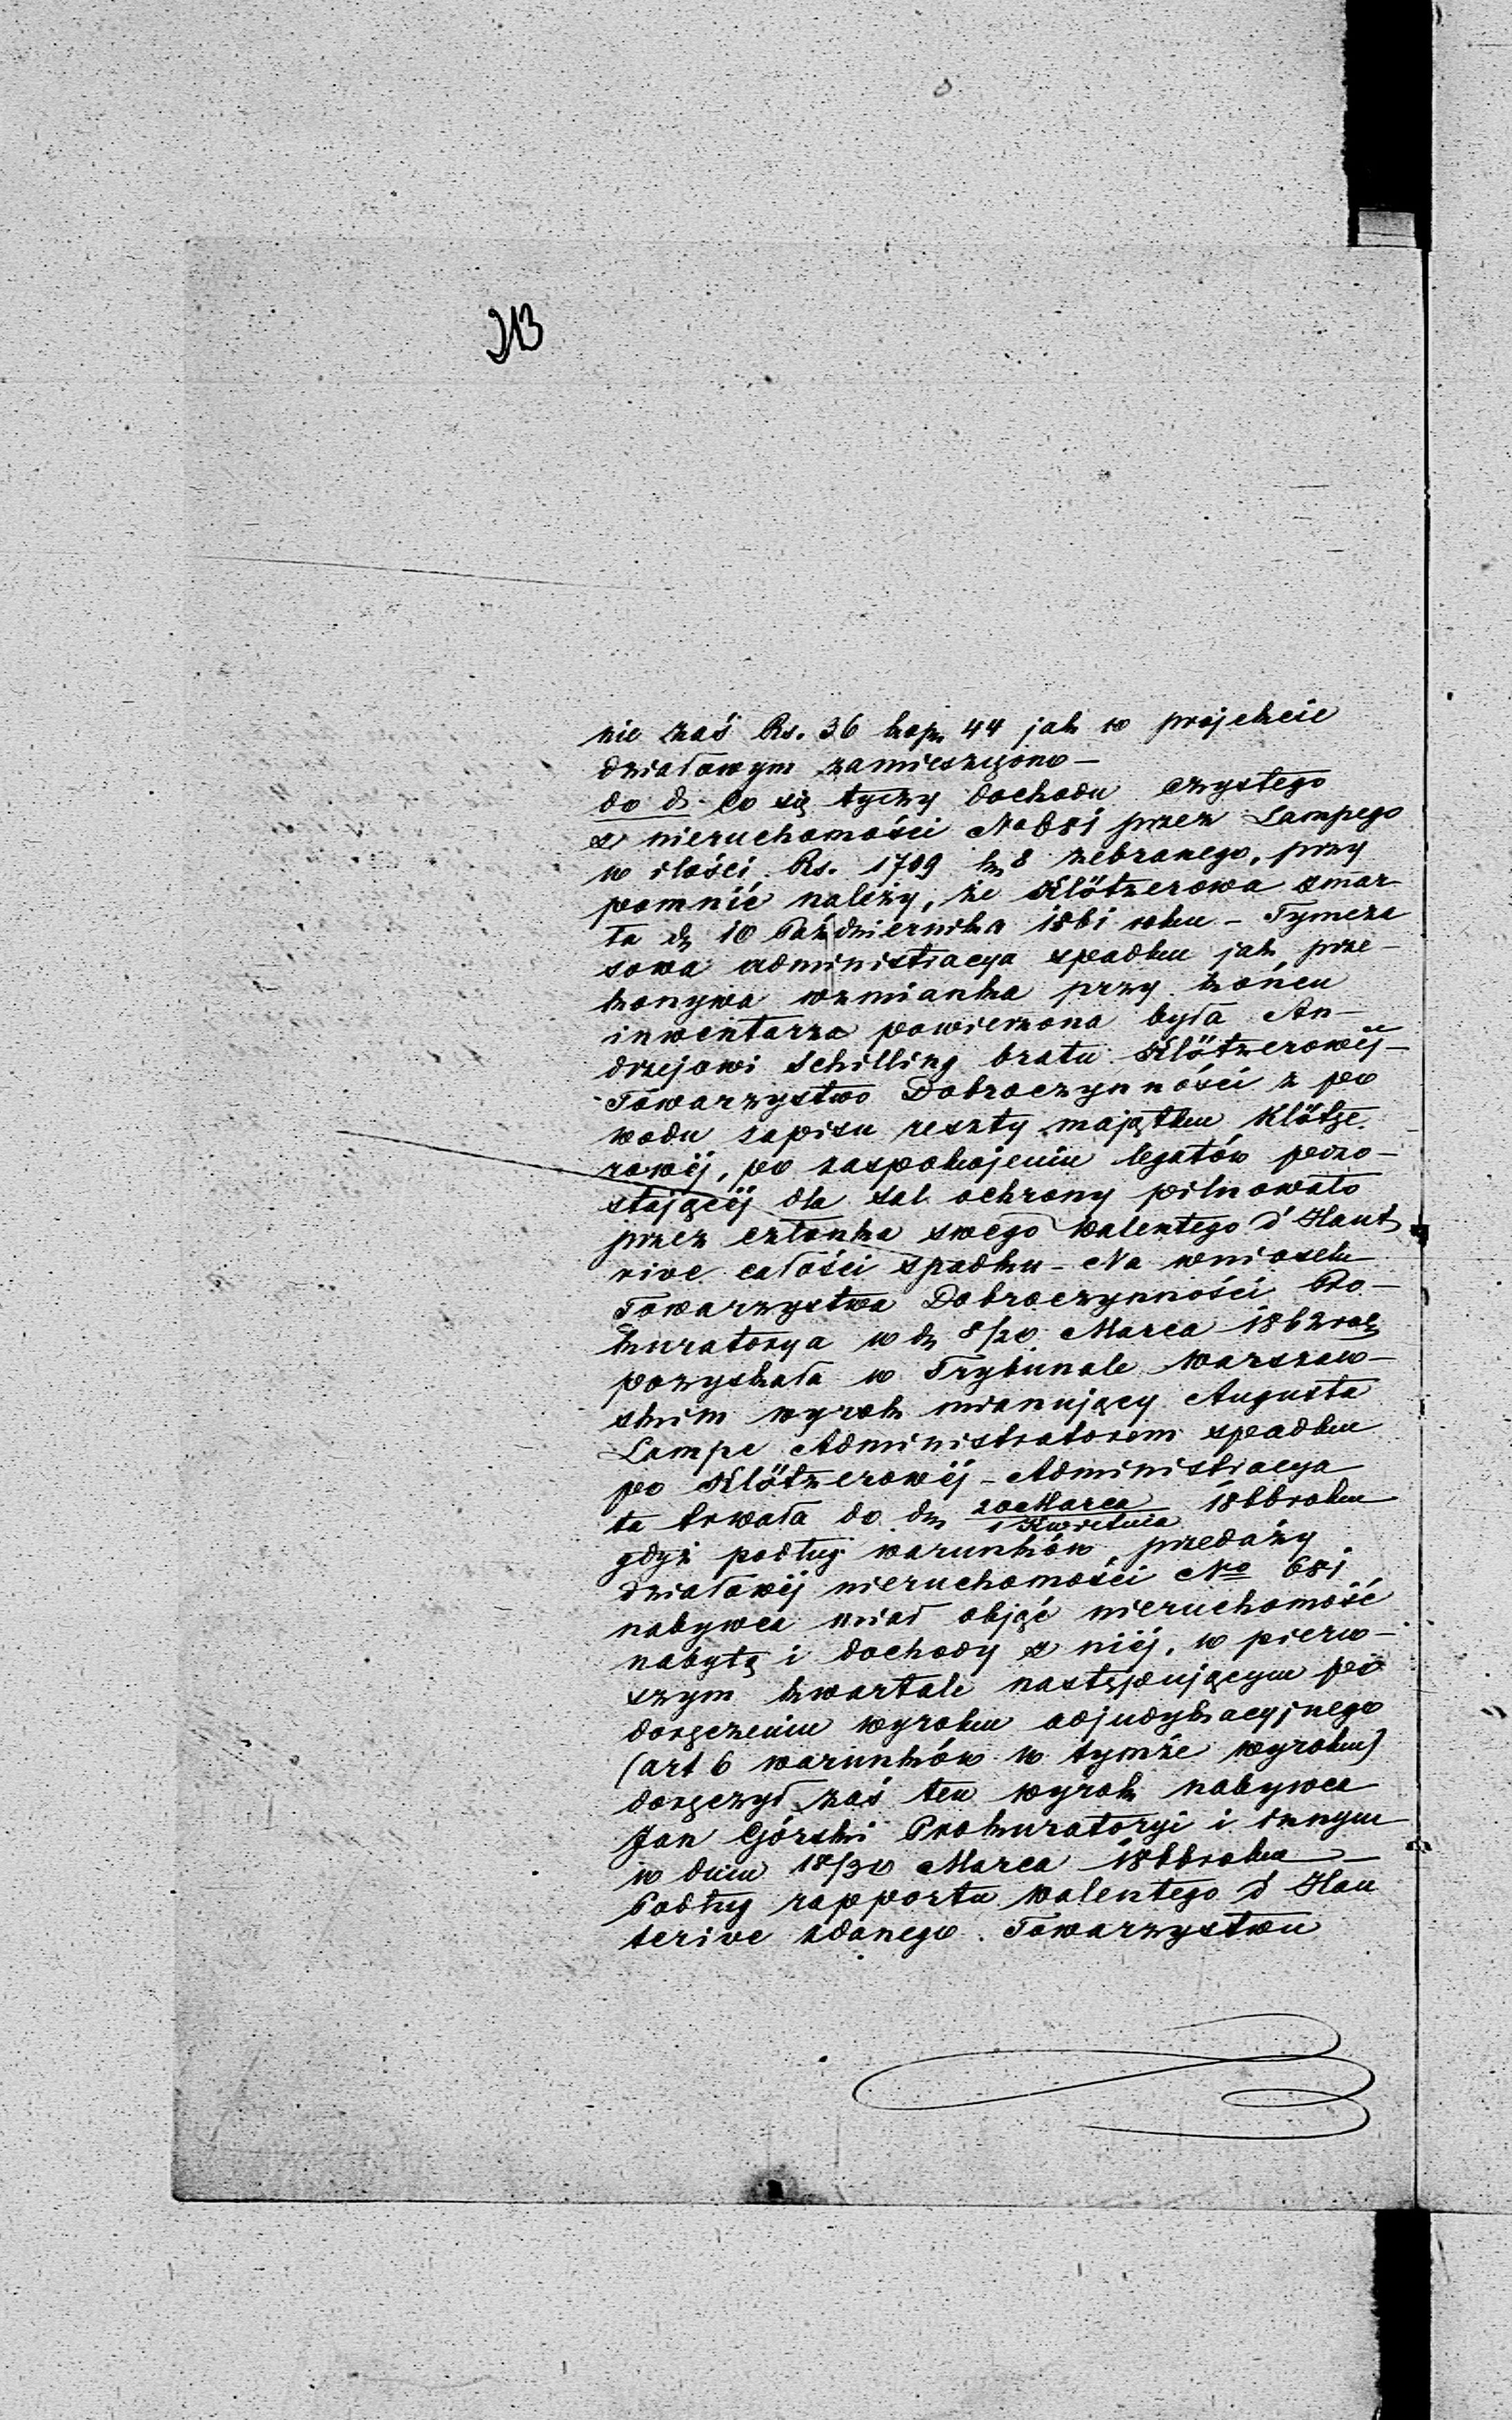 213
nie zaś Rs. 36 kop. 44 jak w projekcie
działowym zamieszczono —
do d. Co się tyczy dochodu czystego
z nieruchomości No 681 przez Lampego
w ilości Rs. 1709 k. 8 zebranego, przy
pomnić należy, że Klötzerowa zmar
ła d. 10 Października 1861 roku — Tymcza
sowa administracya spadku jak prze-
konywa wzmianka przy końcu
inwentarza powierzona była An-
drzejowi Schilling bratu Klötzerowéj —
Towarzystwo Dobroczynności z po
wodu zapisu reszty majątku Klötze
rowéj, po zaspokojeniu legatów pozo-
stającéj dla sal ochrony pilnowało
przez członka swego Walentego d'Haut
rive całości spadku — Na wniosek
Towarzystwa Dobroczynności Pro-
kuratorya w d. 8/20 Marca 1862 rok
pozyskała w Trybunale Warszaw-
skim wyrok mianujący Augusta
Lampe Administratorem spadku
po Klötzerowéj — Administracya
ta trwała do dn. 20 Marca/1 Kwietnia 1866 roku
gdyż podług warunków przedaży
działowéj nieruchomości No 681
nabywca miał objąć nieruchomość
nabytą i dochody z niéj, w pierw-
szym kwartale następującym po
doręczeniu wyroku adjudykacyjnego
(art 6 warunków w tymże wyroku)
doręczył zaś ten wyrok nabywca
Jan Górski Prokuratoryi i innym
w dniu 18/30 Marca 1866 roku —
Podług rapportu Walentego d'Hau
terive zdanego Towarzystwu